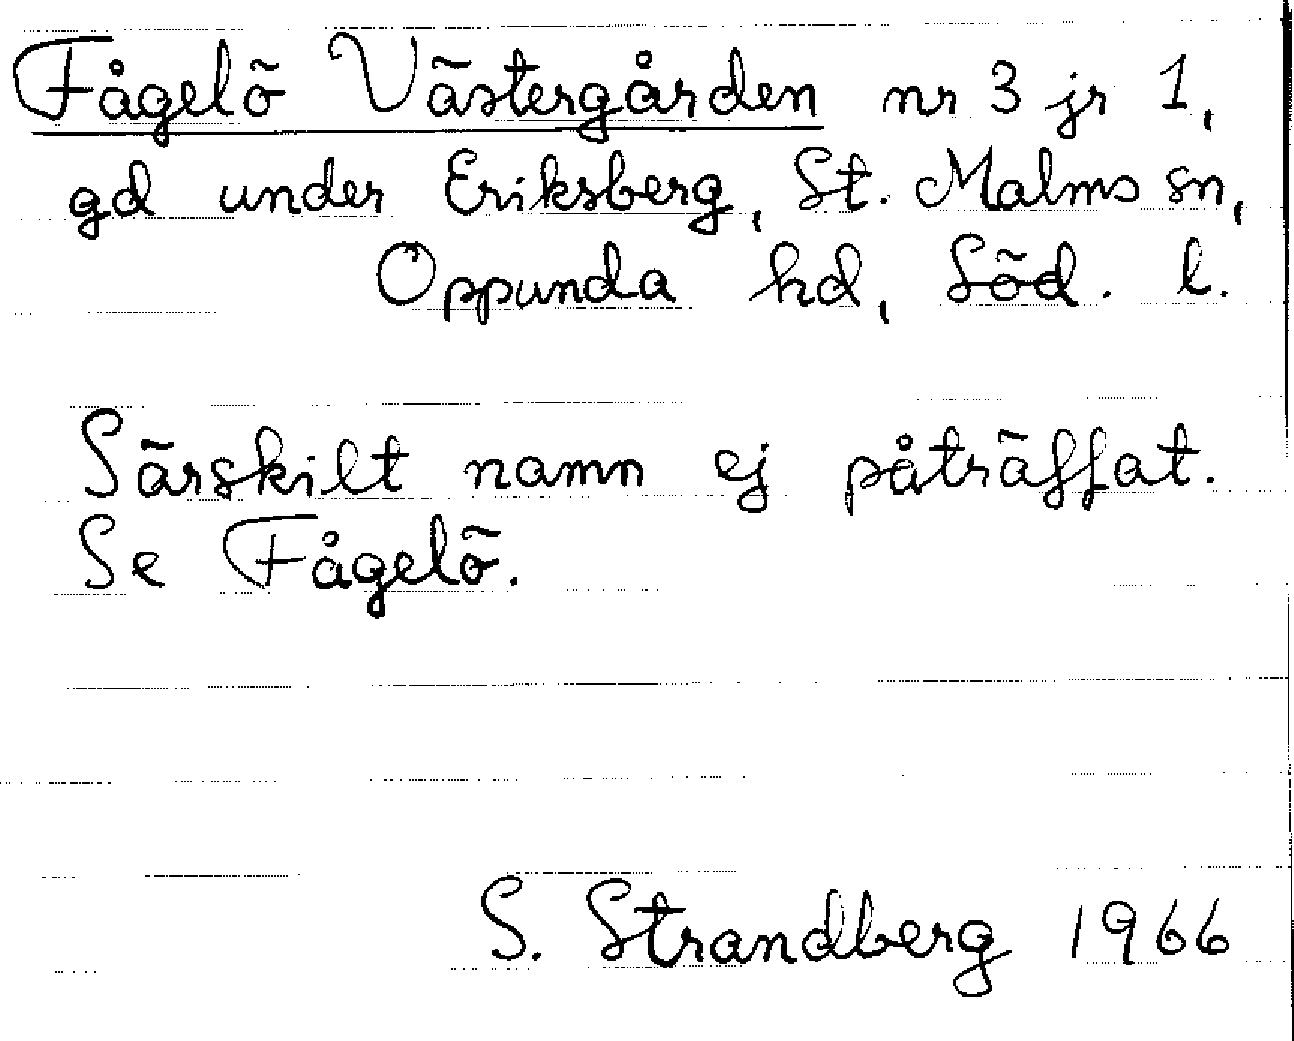 Fågelö Västergården nr 3 jr 1,
gd under Eriksberg, St. Malms sn,
Oppunda hd, Söd. l.
Särskilt namn ej påträffat.
Se Fågelö.
S. Strandberg 1966